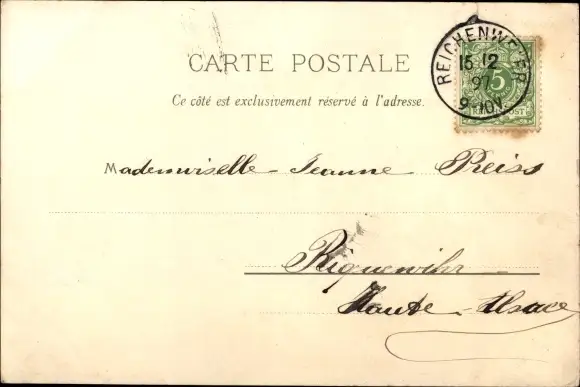 CARTE POSTALE
Ce côté est exclusivement réservé à l'adresse.
REICHENWEIER
15 12
97
9-10V
5
Mademoiselle Jeanne Preiss
Riquewihr
Haute-Alsace